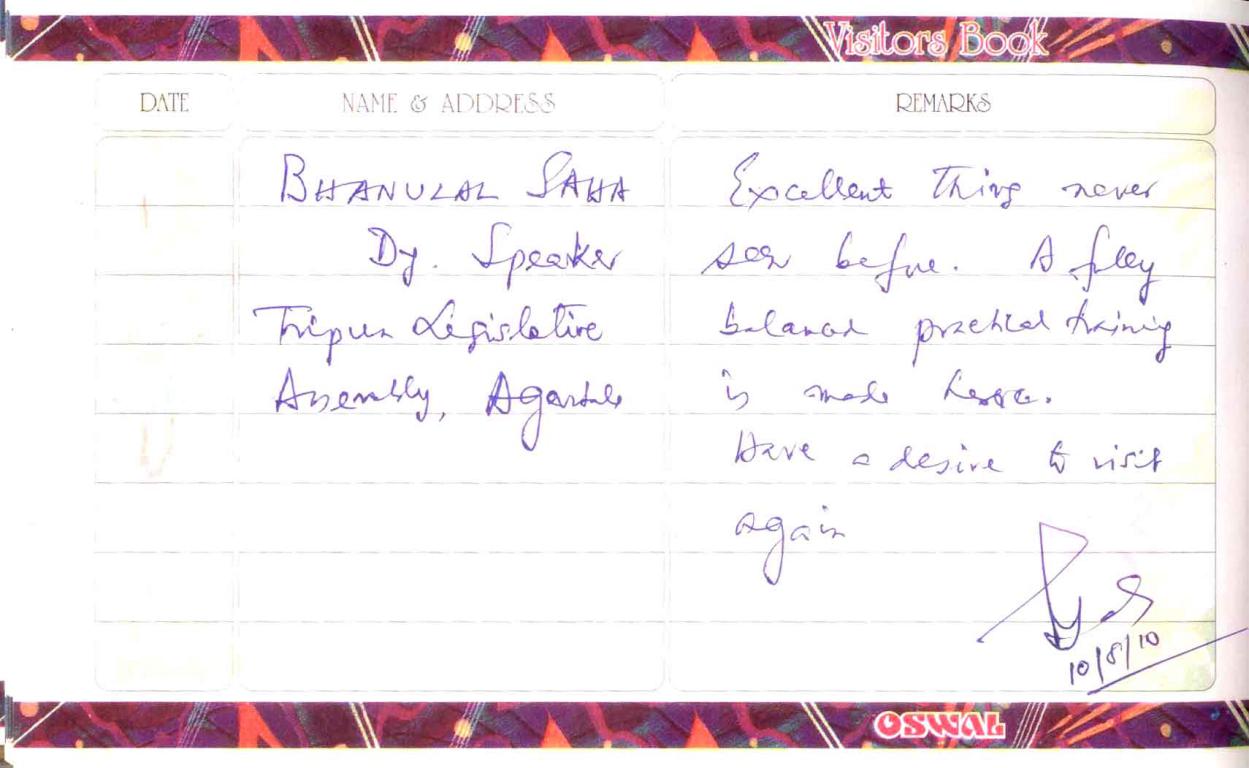 Visitors Book
DATE
NAME & ADDRESS
REMARKS
BHANULAL SAHA
Dy. Speaker
Tripura Legislative
Assembly, Agartala
Excellent thing never
seen before. A fully
balanced practical training
is made here.
Have a desire to visit
again
10/8/10
OSWAL